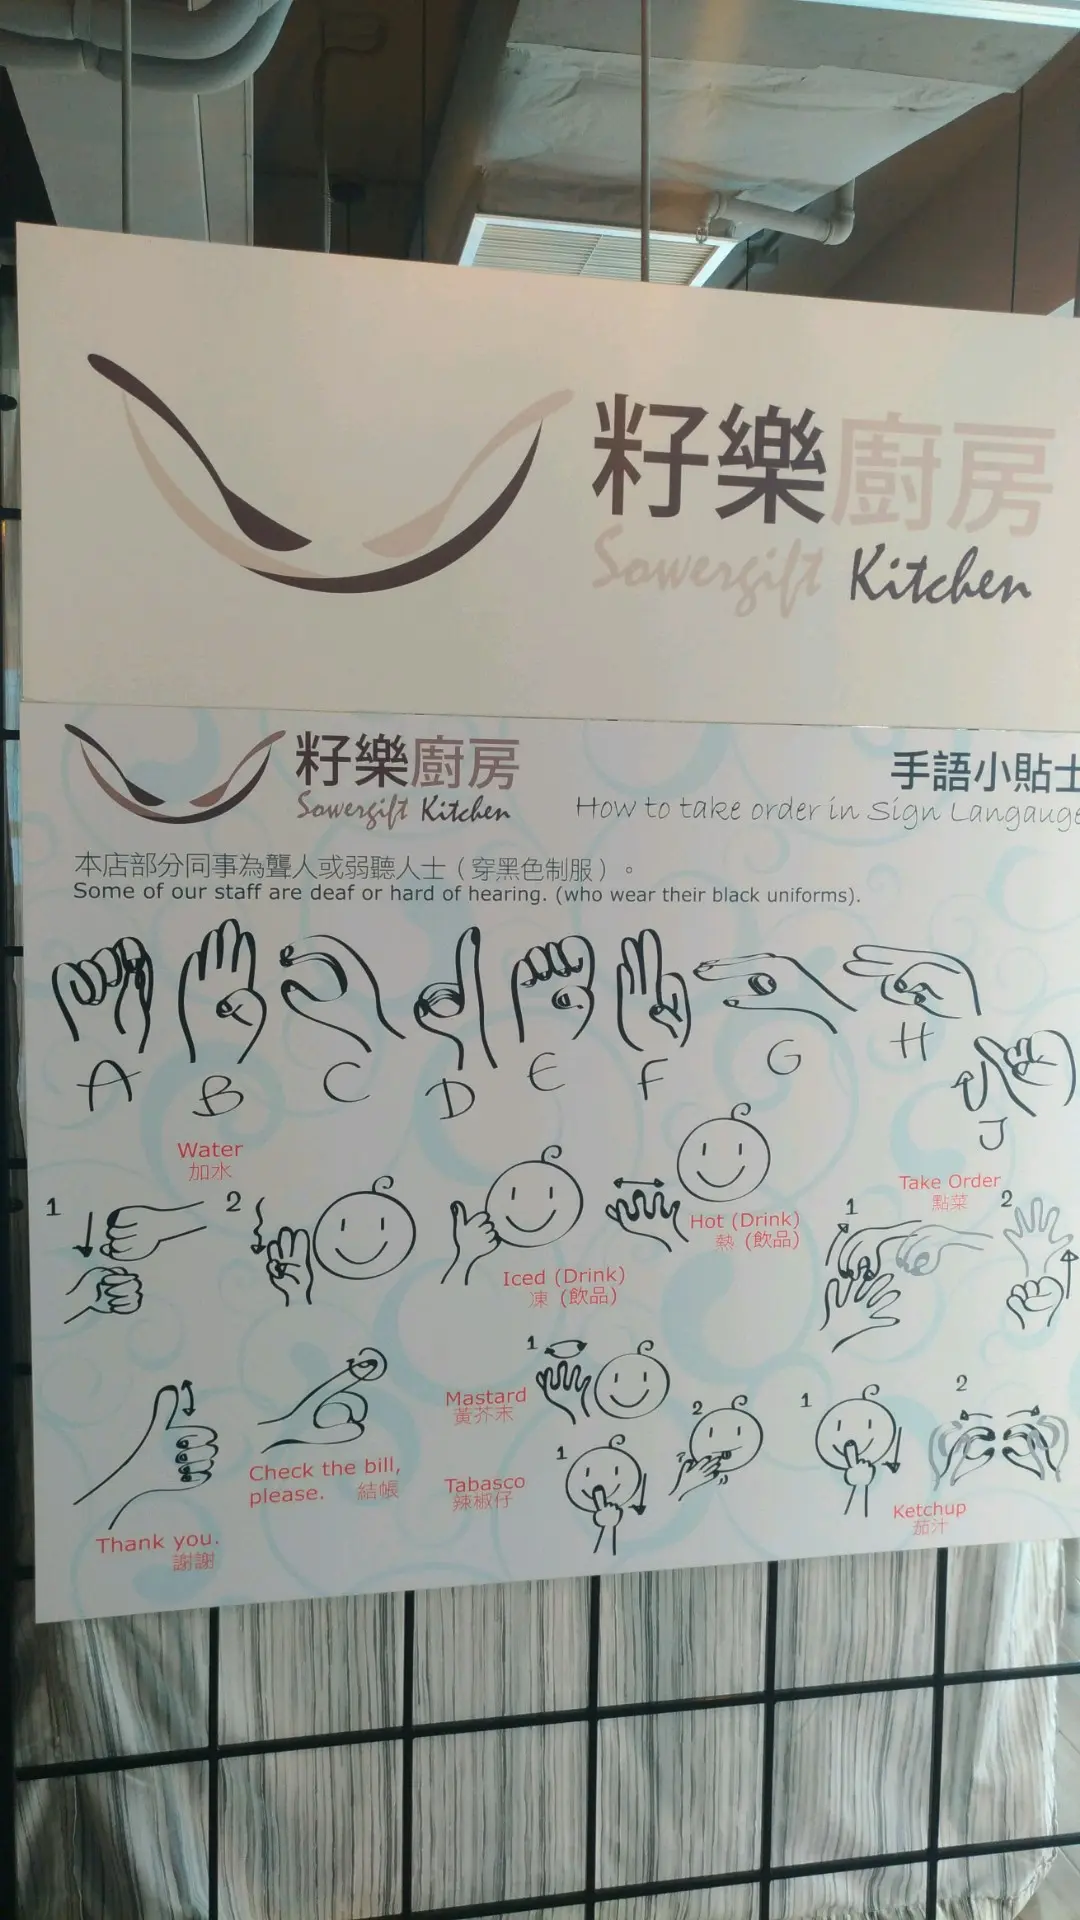 籽樂廚房
Sowergift Kitchen
籽樂廚房
Sowergift Kitchen
手語小貼士
How to take order in Sign Langauge
本店部分同事為聾人或弱聽人士（穿黑色制服）。
Some of our staff are deaf or hard of hearing. (who wear their black uniforms).
A B C D E F G H J
Water
加水
1
2
Iced (Drink)
凍 (飲品)
Hot (Drink)
熱 (飲品)
Take Order
點菜
1
2
Thank you.
謝謝
Check the bill,
please. 結帳
Mastard
黃芥末
1
2
Tabasco
辣椒仔
1
Ketchup
茄汁
1
2